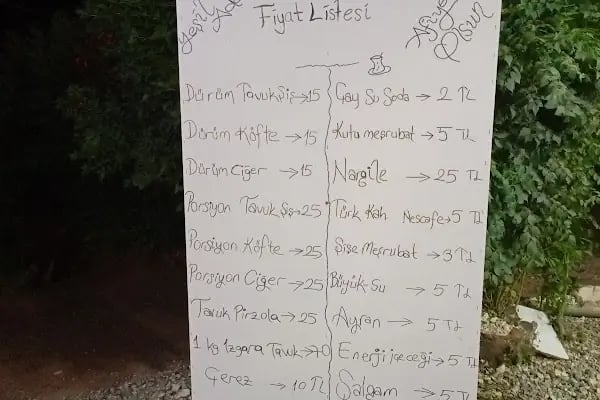 Yeşil Ada
Fiyat Listesi
Afiyet Olsun
Dürüm Tavuk Şiş → 15
Dürüm Köfte → 15
Dürüm Ciğer → 15
Porsiyon Tavuk Şiş → 25
Porsiyon Köfte → 25
Porsiyon Ciğer → 25
Tavuk Pirzola → 25
1 kg Izgara Tavuk → 70
Çerez → 10 TL
Çay Su Soda → 2 TL
Kutu meşrubat → 5 TL
Nargile → 25 TL
Türk Kah Nescafe → 5 TL
Şişe Meşrubat → 3 TL
Büyük Su → 5 TL
Ayran → 5 TL
Enerji içeceği → 5 TL
Şalgam → 5 TL